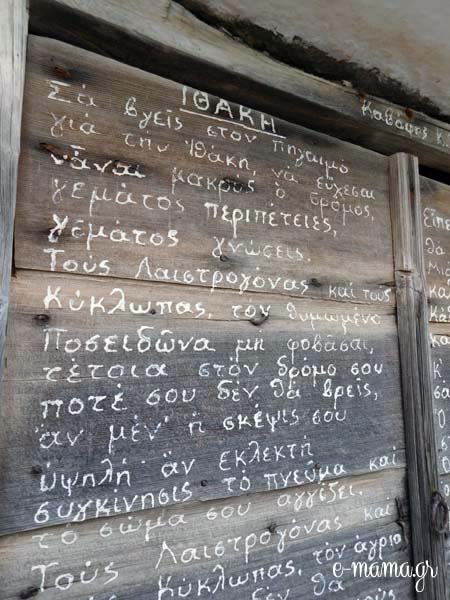 ΙΘΑΚΗ
Καβάφης Κ.
Σά βγεῖς στον πηγαιμό
γιά την Ἰθάκη, νά εὔχεσαι
νἆναι μακρύς ὁ δρόμος,
γεμάτος περιπέτειες,
γεμάτος γνώσεις.
Τούς Λαιστρυγόνας καί τους
Κύκλωπας, τὸν θυμωμένο
Ποσειδῶνα μή φοβᾶσαι,
τέτοια στὸν δρόμο σου
ποτέ σου δέν θά βρεῖς,
ἄν μέν' ἡ σκέψις σου
ὑψηλή ἄν ἐκλεκτή
συγκίνησις τό πνεῦμα καί
τό σῶμα σου αγγίζει.
Τούς Λαιστρυγόνας καί
Κύκλωπας, τόν ἄγριο
δέν θά
e-mama.gr